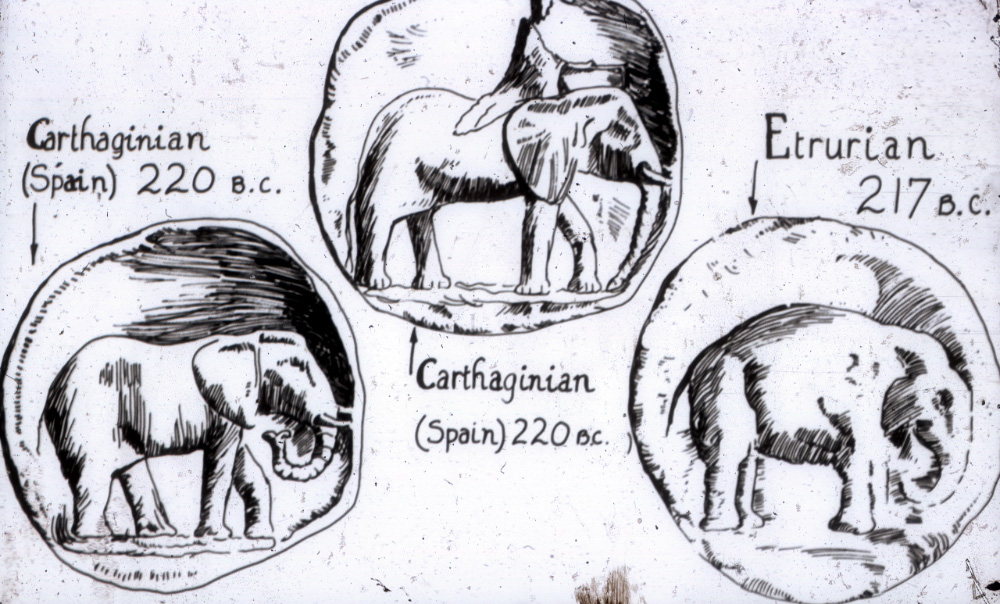 Carthaginian
(Spain) 220 B.C.
Etrurian
217 B.C.
Carthaginian
(Spain) 220 B.C.